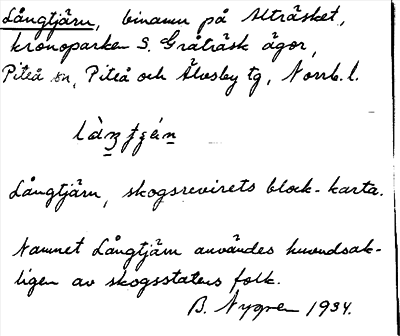 Långtjärn, binamn på Alträsket,
kronoparken S. Gråträsk ägor,
Piteå sn, Piteå och Älvsby tg, Norrb. l.
Långtjärn, skogsrevirets block-karta.
Namnet Långtjärn användes huvudsak-
ligen av skogsstatens folk.
B. Nygren 1934.